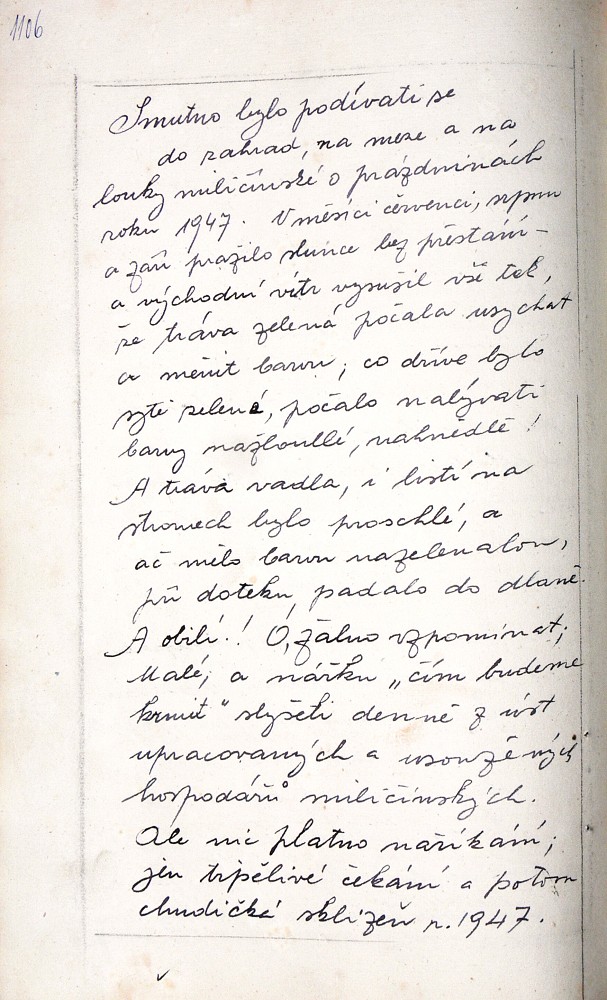 1106
Smutno bylo podívati se
do zahrad, na meze a na
louky miličínské o prázdninách
roku 1947. V měsíci červenci, srpnu
a září pražilo slunce bez přestání –
a východní vítr vysušil vše tak,
že tráva zelená počala usychat
a měnit barvu; co dříve bylo
sytě zelené, počalo nabývati
barvy nažloutlé, nahnědlé!
A tráva vadla, i listí na
stromech bylo proschlé, a
ač mělo barvu nazelenalou,
při doteku, padalo do dlaně.
A obilí.! Ó, žalno vzpomínat;
Malé; a nářku „čím budeme
krmit" slyšeti denně z úst
upracovaných a usoužených
hospodářů miličínských.
Ale nic platno naříkání;
jen trpělivé čekání a potom
chudičká sklizeň r. 1947.